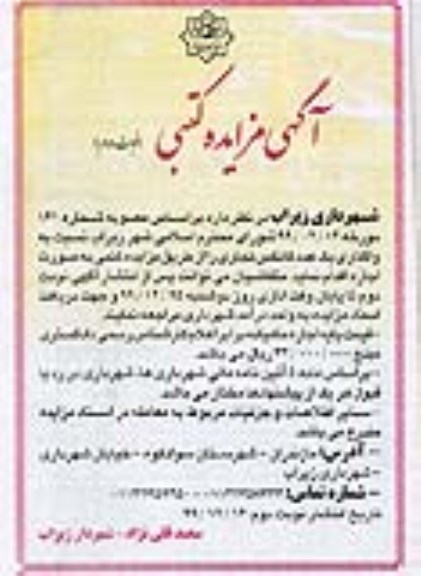 آگهی مزایده کتبی (نوبت دوم)
شهرداری زیراب در نظر دارد بر اساس مصوبه شماره ۱۶۰
مورخه شورای محترم اسلامی شهر زیراب نسبت به
واگذاری یک عدد کانکس تجاری را از طریق مزایده کتبی به صورت
اجاره اقدام نماید. متقاضیان می توانند پس از انتشار آگهی نوبت
دوم تا پایان وقت اداری روز دوشنبه ۹۹/۱۲/۲۵ و جهت دریافت
اسناد مزایده به واحد درآمد شهرداری مراجعه نمایند.
- قیمت پایه اجاره ماهیانه برابر اعلام کارشناس رسمی دادگستری
مبلغ ریال می باشد.
- براساس آئین نامه مالی شهرداری ها، شهرداری در رد یا
قبول هر یک از پیشنهادها مختار می باشد.
- سایر اطلاعات و جزئیات مربوط به معامله در اسناد مزایده
مندرج می باشد.
- آدرس: مازندران - شهرستان سوادکوه - خیابان شهرداری
- شهرداری زیراب
- شماره تماس:
تاریخ انتشار نوبت دوم
شهردار زیراب